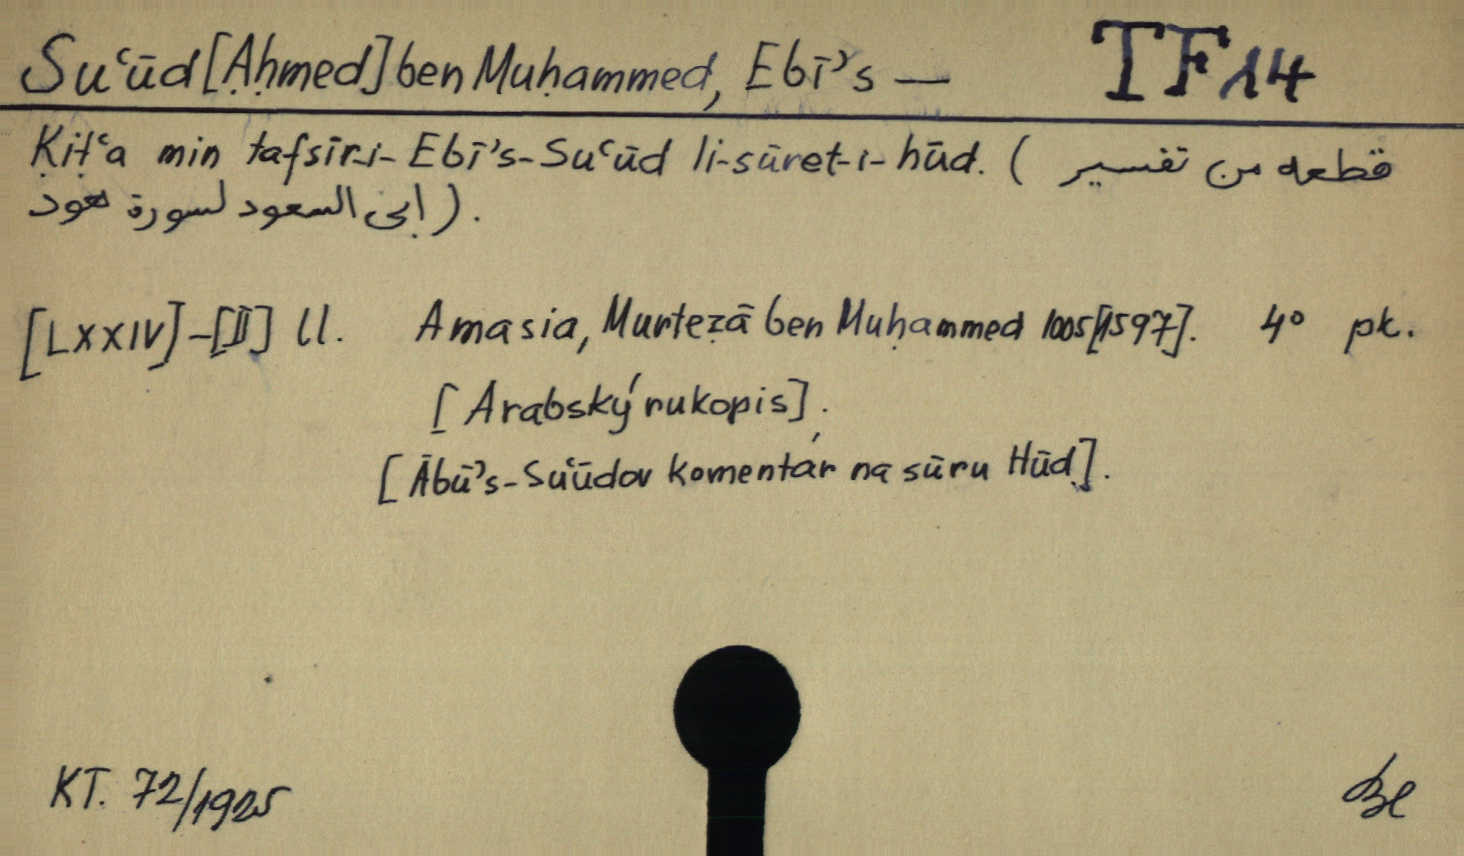 Suʿūd [Aḥmed] ben Muḥammed, Ebī's — TF 14
Ḳiṭʿa min tafsīr-i- Ebī's-Suʿūd li-sūret-i-hūd. ( قطعه من تفسير
ابى السعود لسورة هود ).
[LXXIV]-[II] ll. Amasia, Murteẓā ben Muḥammed 1005 [1597]. 4° pk.
[Arabský rukopis].
[Ābū's-Suʿūdov komentár na sūru Hūd].
KT. 72/1925